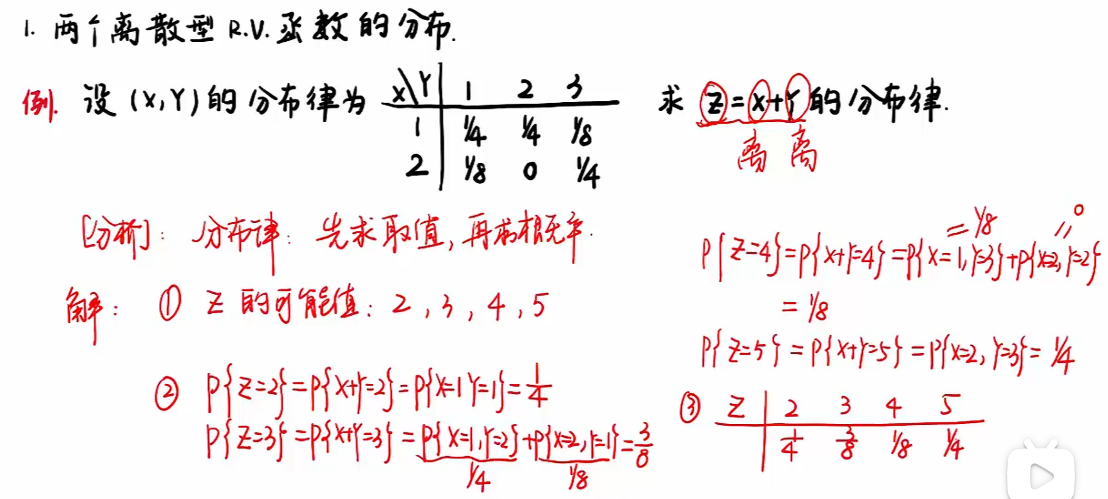 1. 两个离散型 R.V. 函数的分布.
例. 设 (X,Y) 的分布律为
X\Y 1 2 3
1 1/4 1/4 1/8
2 1/8 0 1/4
求 Z=X+Y 的分布律.
离 离
[分析]: 分布律: 先求取值, 再求概率.
解: ① Z 的可能值: 2, 3, 4, 5
② P{Z=2}=P{X+Y=2}=P{X=1 Y=1}=1/4
P{Z=3}=P{X+Y=3}=P{X=1,Y=2}+P{X=2,Y=1}=3/8
1/4 1/8
=1/8 =0
P{Z=4}=P{X+Y=4}=P{X=1,Y=3}+P{X=2,Y=2}
=1/8
P{Z=5}=P{X+Y=5}=P{X=2,Y=3}=1/4
③ Z 2 3 4 5
1/4 3/8 1/8 1/4